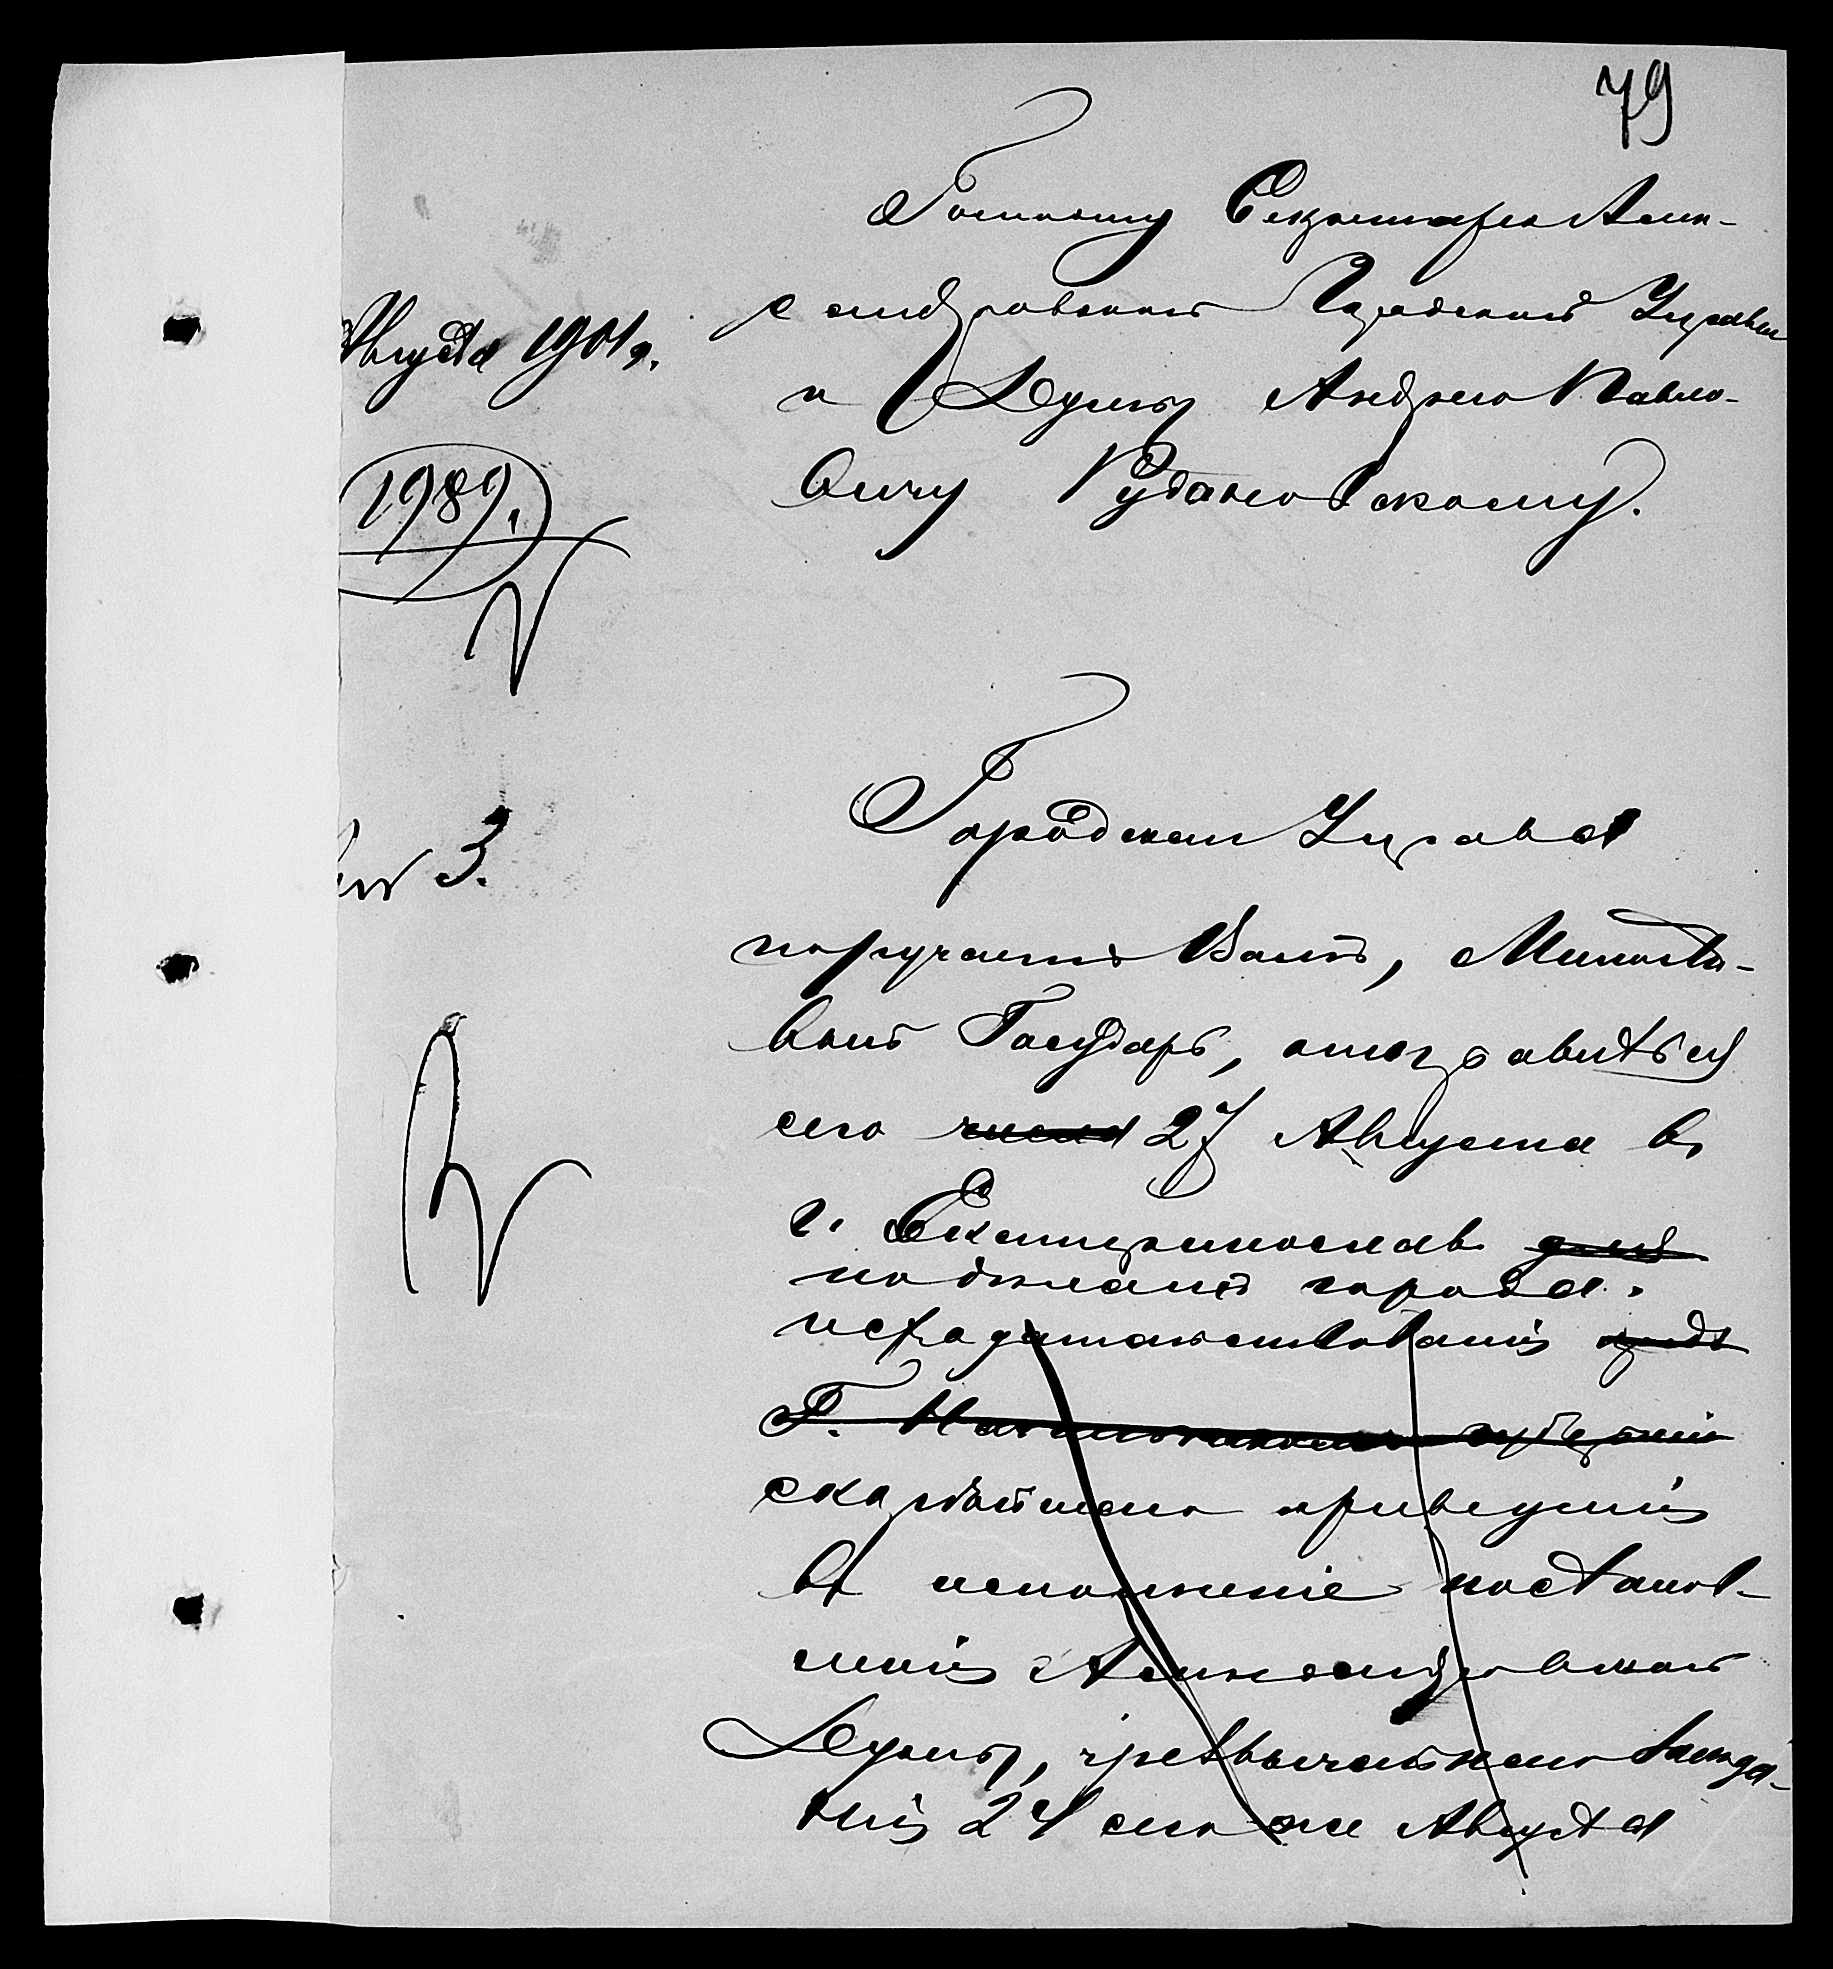 79
Господину Секретарю Алек-
сандровской Городской Управы
и Думы Андрею Павло-
вичу Рудановскому.
Августа 1901 г.
1989.
Городская Управа
3.
поручаетъ Вамъ, Милости-
вый Государь, отправиться
сего числа 27 Августа въ
г. Екатеринославъ для
ходатайствованія предъ
Г. Начальникомъ губерніи
скорѣйшаго приведенія
въ исполненіе постанов-
ленія Александровской
Думы, чрезвычайнаго засѣда-
нія 24 сего же Августа